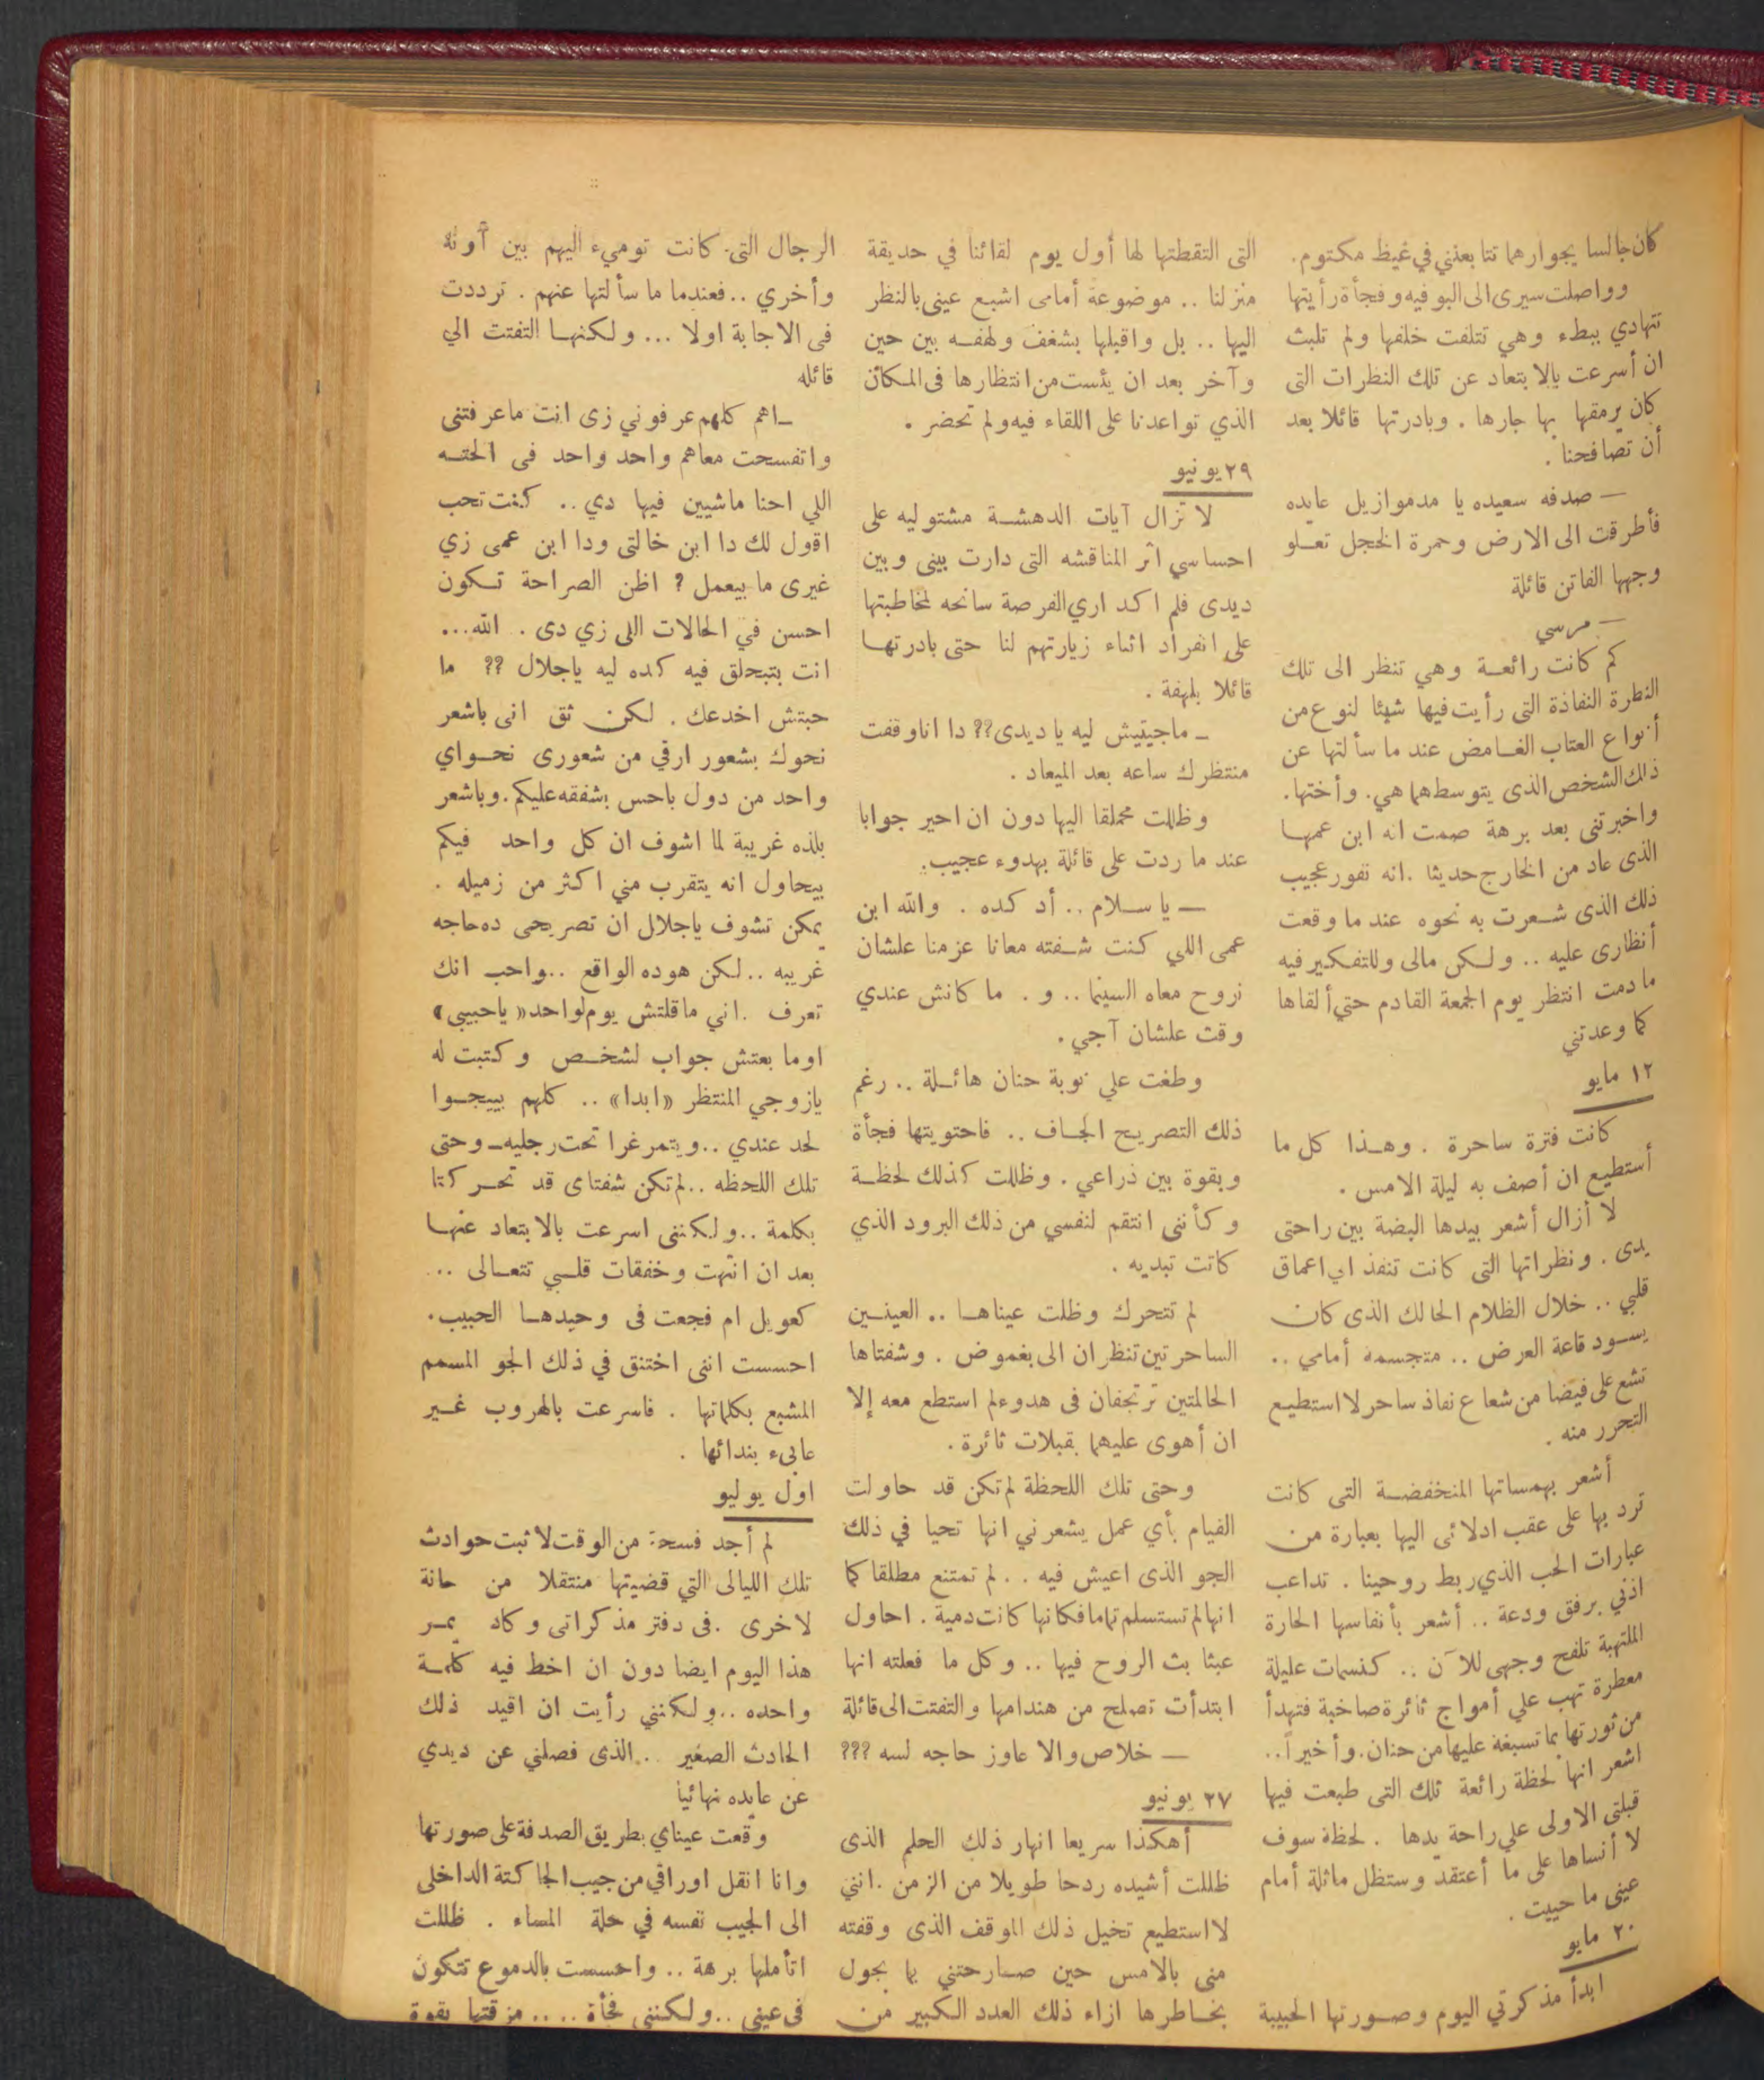 كان جالسا بجوارهما تتا بعنني في غيظ مكتوم.
وواصلت سيرى الى البوفيه وفجأة رأيتها
تتهادي ببطء وهي تتلفت خلفها ولم تلبث
ان أسرعت بالابتعاد عن تلك النظرات التى
كان يرمقها بها جارها . وبادرتها قائلا بعد
أن تصافحنا .
— صدفه سعيده يا مدموازيل عايده
فأطرقت الى الارض وحمرة الخجل تعلو
وجهها الفاتن قائلة
— مرسي
كم كانت رائعة وهي تنظر الى تلك
النظرة النفاذة التى رأيت فيها شيئا لنوع من
أنواع العتاب الغامض عند ما سألتها عن
ذلك الشخص الذى يتوسطهما هي. وأختها.
واخبرتنى بعد برهة صمت انه ابن عمها
الذى عاد من الخارج حديثا . انه نفور عجيب
ذلك الذى شعرت به نحوه عند ما وقعت
أنظارى عليه .. ولكن مالى وللتفكير فيه
ما دمت انتظر يوم الجمعة القادم حتي ألقاها
كما وعدتني
١٢ مايو
كانت فترة ساحرة . وهذا كل ما
أستطيع ان أصف به ليلة الامس .
لا أزال أشعر بيدها البضة بين راحتى
يدى . ونظراتها التى كانت تنفذ الى اعماق
قلبي .. خلال الظلام الحالك الذى كان
يسود قاعة العرض .. متجسمه أمامي ..
تشع على فيضا من شعاع نفاذ ساحر لا استطيع
التحرر منه .
أشعر بهمساتها المنخفضة التى كانت
ترد بها على عقب ادلائى اليها بعبارة من
عبارات الحب الذي ربط روحينا . تداعب
اذني برفق ودعة .. أشعر بأنفاسها الحارة
الملتهبة تلفح وجهى للآن .. كنسمات عليلة
معطرة تهب علي أمواج ثائرة صاخبة فتهدأ
من ثورتها بما تسبغه عليها من حنان. وأخيرا..
اشعر انها لحظة رائعة تلك التى طبعت فيها
قبلتى الاولى علي راحة يدها . لحظة سوف
لا أنساها على ما أعتقد وستظل ماثلة أمام
عينى ما حييت .
٢٠ مايو
ابدأ مذكرتي اليوم وصورتها الحبيبة
التى التقطتها لها أول يوم لقائنا في حديقة
منزلنا .. موضوعة أمامى اشبع عينى بالنظر
اليها .. بل واقبلها بشغف ولهفه بين حين
وآخر بعد ان يئست من انتظارها فى المكان
الذي تواعدنا على اللقاء فيه ولم تحضر .
٢٩ يونيو
لا تزال آيات الدهشة مشتوليه على
احساسي اثر المناقشه التى دارت بينى وبين
ديدى فلم اكد اري الفرصة سانحه لمخاطبتها
على انفراد اثناء زيارتهم لنا حتى بادرتها
قائلا بلهفة .
ـ ماجيتيش ليه يا ديدى؟؟ دا انا وقفت
منتظرك ساعه بعد الميعاد .
وظللت محملقا اليها دون ان احير جوابا
عند ما ردت على قائلة بهدوء عجيب.
— يا سلام .. أد كده . والله ابن
عمى اللي كنت شفته معانا عزمنا علشان
نروح معاه السينما .. و . ما كانش عندي
وقت علشان آجي .
وطغت علي نوبة حنان هائلة .. رغم
ذلك التصريح الجاف .. فاحتويتها فجأة
وبقوة بين ذراعي . وظللت كذلك لحظة
وكأننى انتقم لنفسي من ذلك البرود الذي
كانت تبديه .
لم تتحرك وظلت عيناها .. العينين
الساحرتين تنظران الى بغموض . وشفتاها
الحالمتين ترتجفان فى هدوء لم استطع معه إلا
ان أهوى عليهما بقبلات ثائرة .
وحتى تلك اللحظة لم تكن قد حاولت
القيام بأي عمل يشعرني انها تحيا في ذلك
الجو الذى اعيش فيه .. لم تمتنع مطلقا كما
انها لم تستسلم تماما فكانها كانت دمية . احاول
عبثا بث الروح فيها .. وكل ما فعلته انها
ابتدأت تصلح من هندامها والتفتت الى قائلة
— خلاص والا عاوز حاجه لسه ؟؟؟
٢٧ يونيو
أهكذا سريعا انهار ذلك الحلم الذى
ظللت أشيده ردحا طويلا من الزمن . اننى
لا استطيع تخيل ذلك الموقف الذى وقفته
منى بالامس حين صارحتني بما يجول
بخاطرها ازاء ذلك العدد الكبير من
الرجال التى كانت توميء اليهم بين آونة
وأخري .. فعندما ما سألتها عنهم . ترددت
فى الاجابة اولا ... ولكنها التفتت الي
قائله
ـ اهم كلهم عرفوني زى انت ما عرفتنى
واتفسحت معاهم واحد واحد فى الحته
اللي احنا ماشيين فيها دي .. كنت تحب
اقول لك دا ابن خالتى ودا ابن عمى زي
غيرى ما بيعمل ؟ اظن الصراحة تكون
احسن في الحالات اللى زي دى . الله...
انت بتبحلق فيه كده ليه ياجلال ؟؟ ما
حبتش اخدعك . لكن ثق انى باشعر
نحوك بشعور ارقي من شعورى نحواي
واحد من دول باحس بشفقه عليكم . وباشعر
بلذه غريبة لما اشوف ان كل واحد فيكم
بيحاول انه يتقرب مني اكثر من زميله .
يمكن تشوف ياجلال ان تصريحى ده حاجه
غريبه .. لكن هو ده الواقع .. واحب انك
تعرف . اني ما قلتش يوم لواحد « ياحبيبى »
اوما بعتش جواب لشخص وكتبت له
يازوجي المنتظر «ابدا» .. كلهم بييجوا
لحد عندي .. ويتمرغرا تحت رجليه ـ وحتى
تلك اللحظه .. لم تكن شفتاى قد تحركتا
بكلمة .. ولكننى اسرعت بالابتعاد عنها
بعد ان انتهت وخفقات قلبي تتعالى ..
كعويل ام فجعت فى وحيدها الحبيب .
احسست اننى اختنق في ذلك الجو المسمم
المشبع بكلماتها . فاسرعت بالهروب غير
عابىء بندائها .
اول يوليو
لم أجد فسحة من الوقت لاثبت حوادث
تلك الليالى التي قضيتها منتقلا من حانة
لاخرى . فى دفتر مذكراتى وكاد يمر
هذا اليوم ايضا دون ان اخط فيه كلمة
واحده .. ولكنني رأيت ان اقيد ذلك
الحادث الصغير .. الذى فصلني عن ديدي
عن عايده نهائيا
وقعت عيناي بطريق الصدفة على صورتها
وانا انقل اوراقي من جيب الجاكتة الداخلى
الى الجيب نفسه في حلة المساء . ظللت
اتأملها برهة .. واحسست بالدموع تتكون
فى عينى .. ولكننى فجأة .... مزقتها بقوة